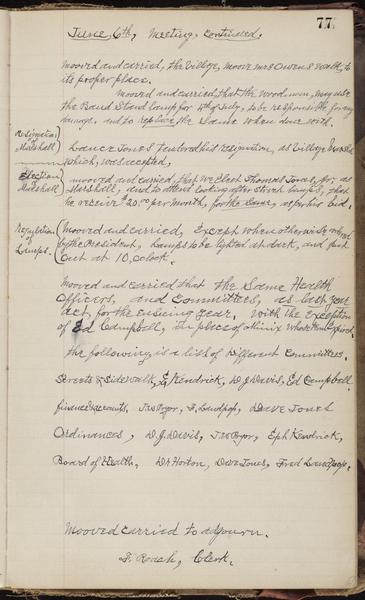 77.
June 6th, Meeting, continued,
mooved and carried, the Village, moove mrs Owens vault, to
its proper place.
mooved and carried that the wood men, may use
the Band Stand lamp for 4th of July, to be responsible for any
damage, and to replace the Same when done with.
Resignation
of
Marshall
Lance Jones tendered his resignation, as Village Marshall
which, was accepted,
Election
Marshall
mooved and carried, that we Elect Thomas Jones, for, as
Marshall, and to attend looking after street lamps, that
he receive $20.00 per month, for the Same, as per his bid.
Regulation
of
Lamps.
Mooved and carried, Except when otherwise ordered
by the President, Lamps to be lighted at dark, and put
Out at 10,oclock.
Mooved and carried that the Same Health
Officers, and Committees, as last year
act, for the ensuing year, with the exception
of Ed Campbell, in place of
the following is a list of Different Committees,
Streets & Sidewalk, E. Kendrick, D.J. Davis, Ed Campbell.
finance & accounts, Jno Pryor, F. Landpap, Dave Jones
Ordinances, D.J. Davis, Jno Pryor, Eph Kendrick,
Board of Health, Dr Horton, Dave Jones, Fred Landpap.
Mooved carried to adjourn.
T. Roach, Clerk.